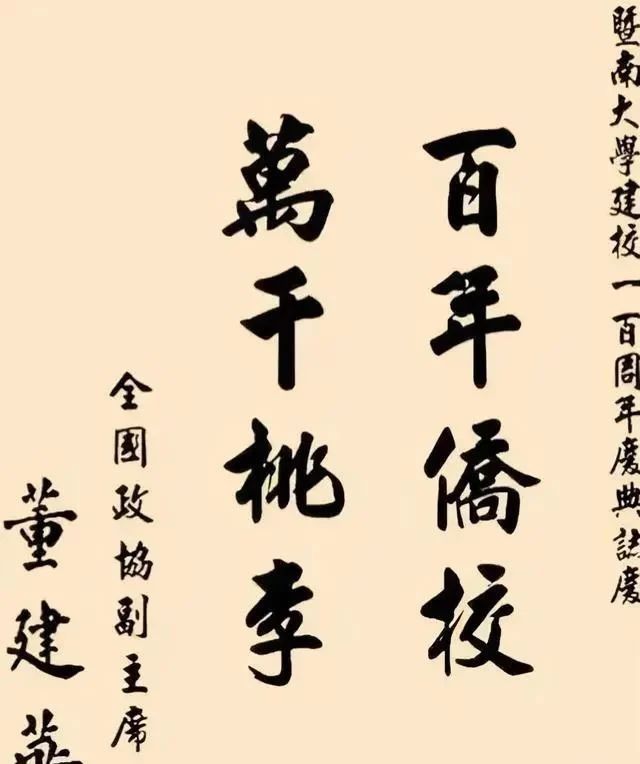 暨南大學建校一百周年慶典誌慶
百年僑校
萬千桃李
全國政協副主席
董建華